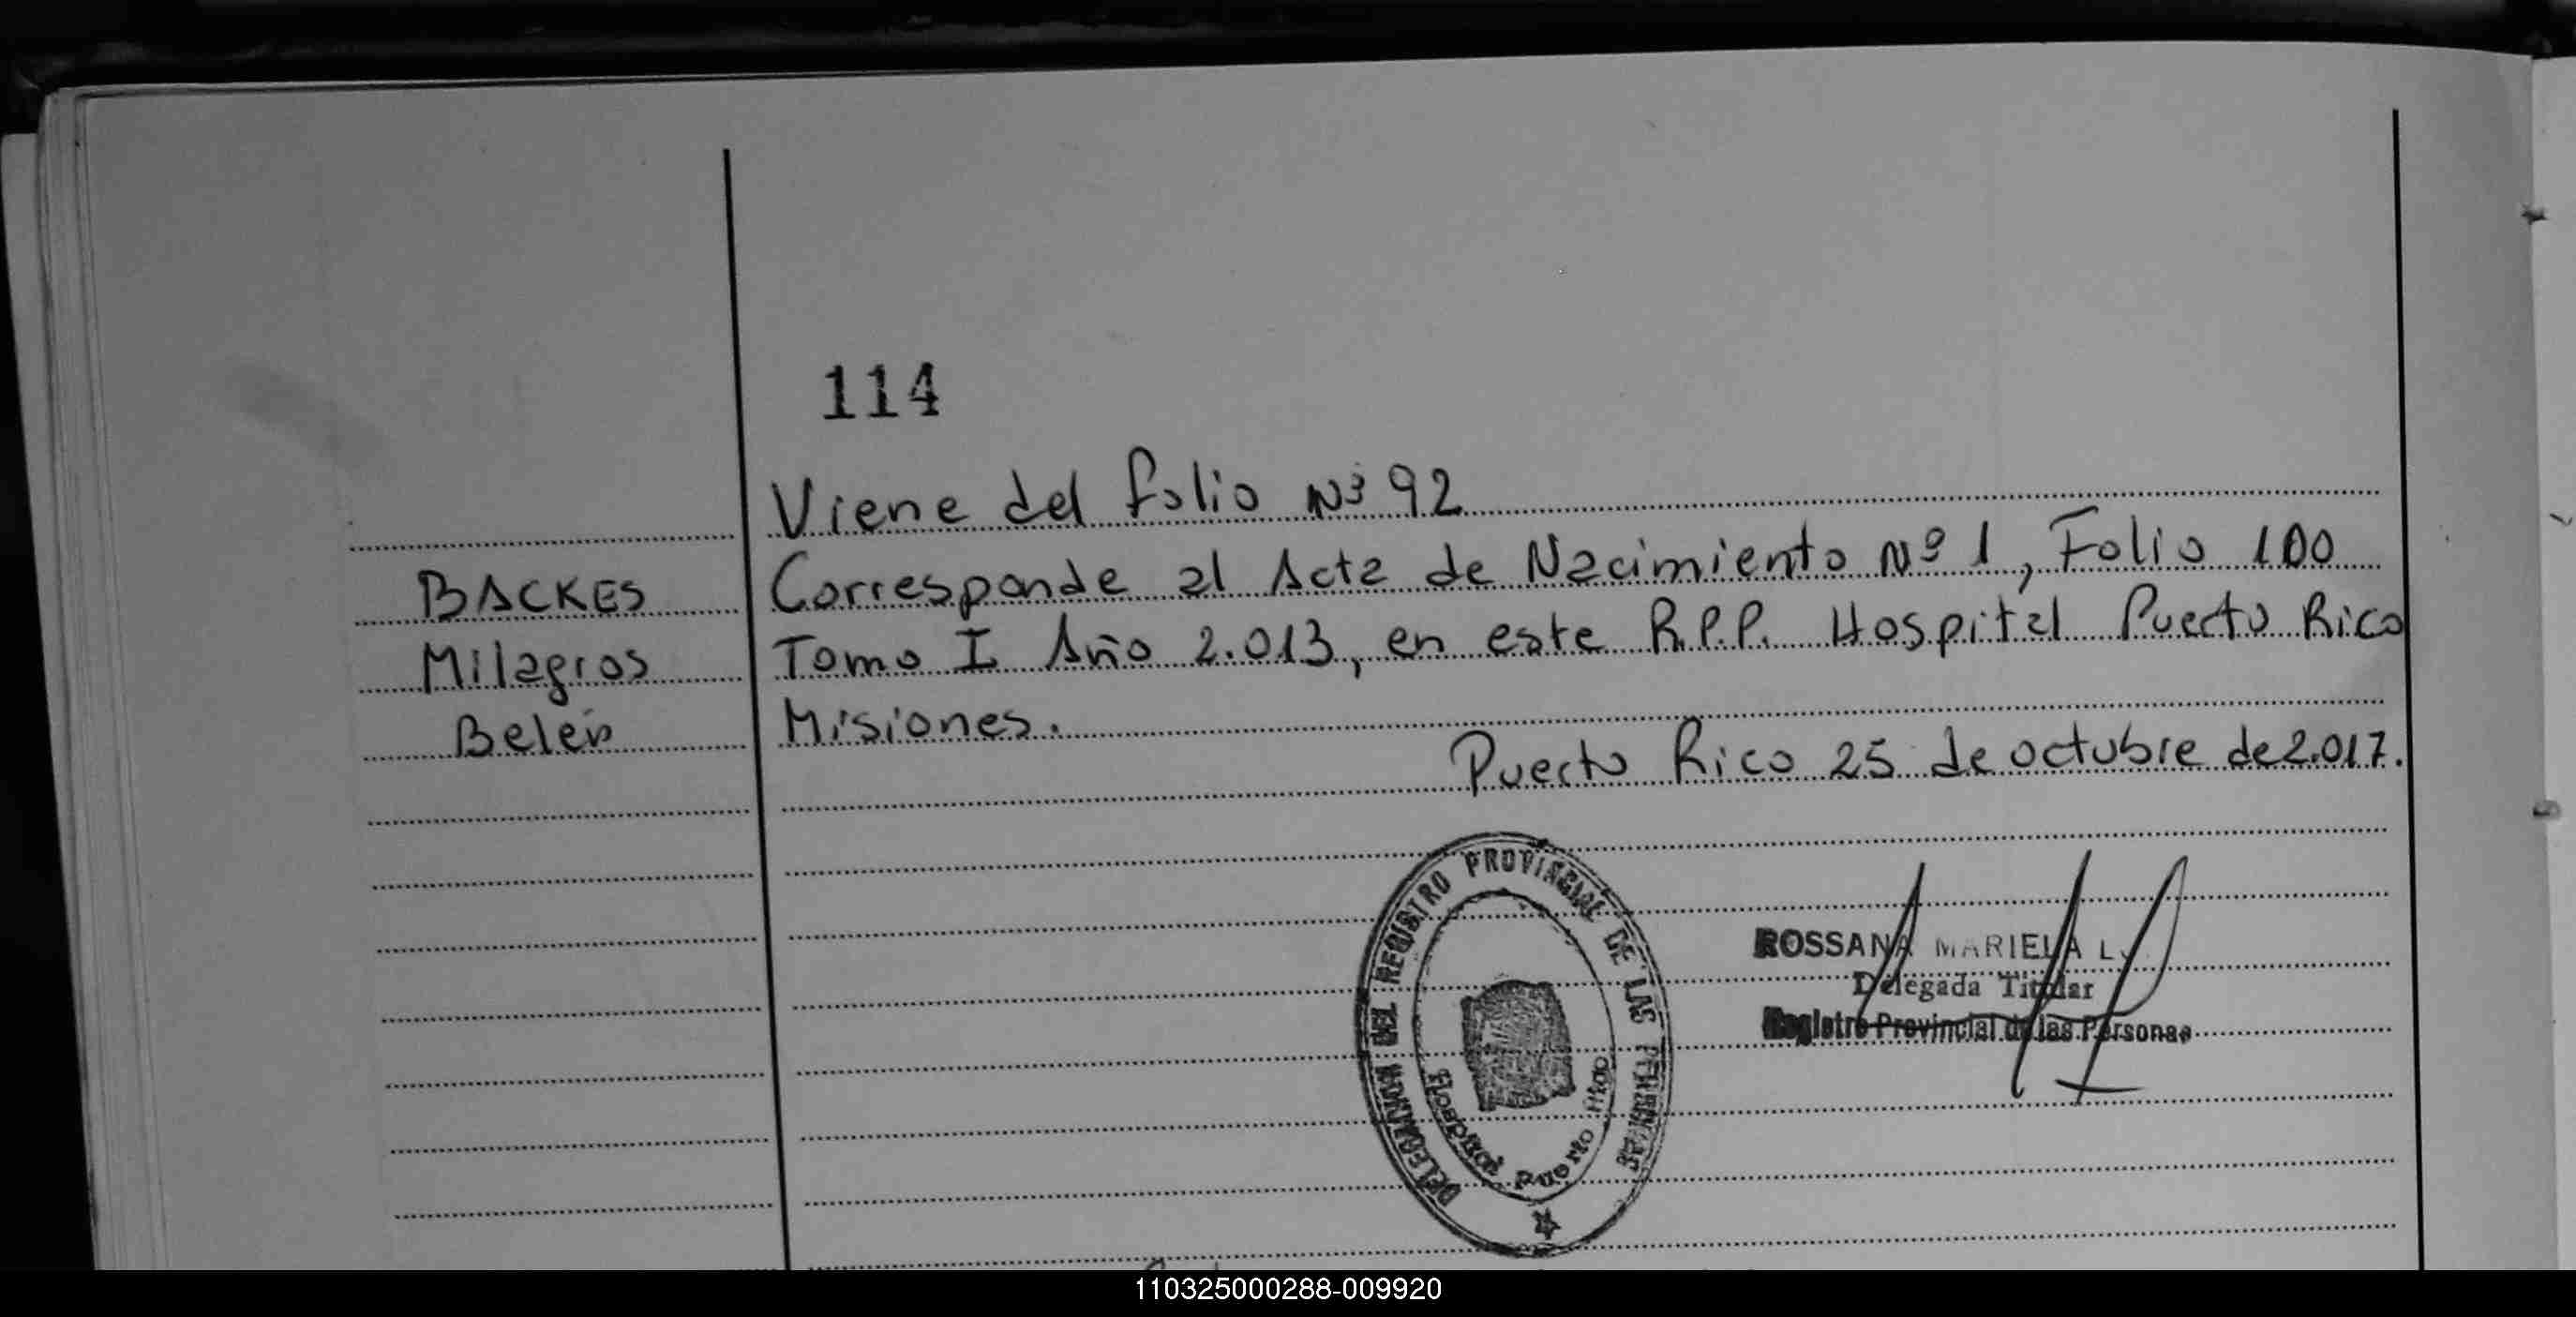 114
Viene del folio Nº 92
BACKES Corresponde al Acta de Nacimiento Nº 1, Folio 100
Milagros Tomo I Año 2.013, en este R.P.P. Hospital Puerto Rico
Belén Misiones.
Puerto Rico 25 de octubre de 2.017.
DELEGACION DEL REGISTRO PROVINCIAL DE LAS PERSONAS
Hospital Puerto Rico
ROSSANA MARIELA
Delegada Titular
Registro Provincial de las Personas
110325000288-009920